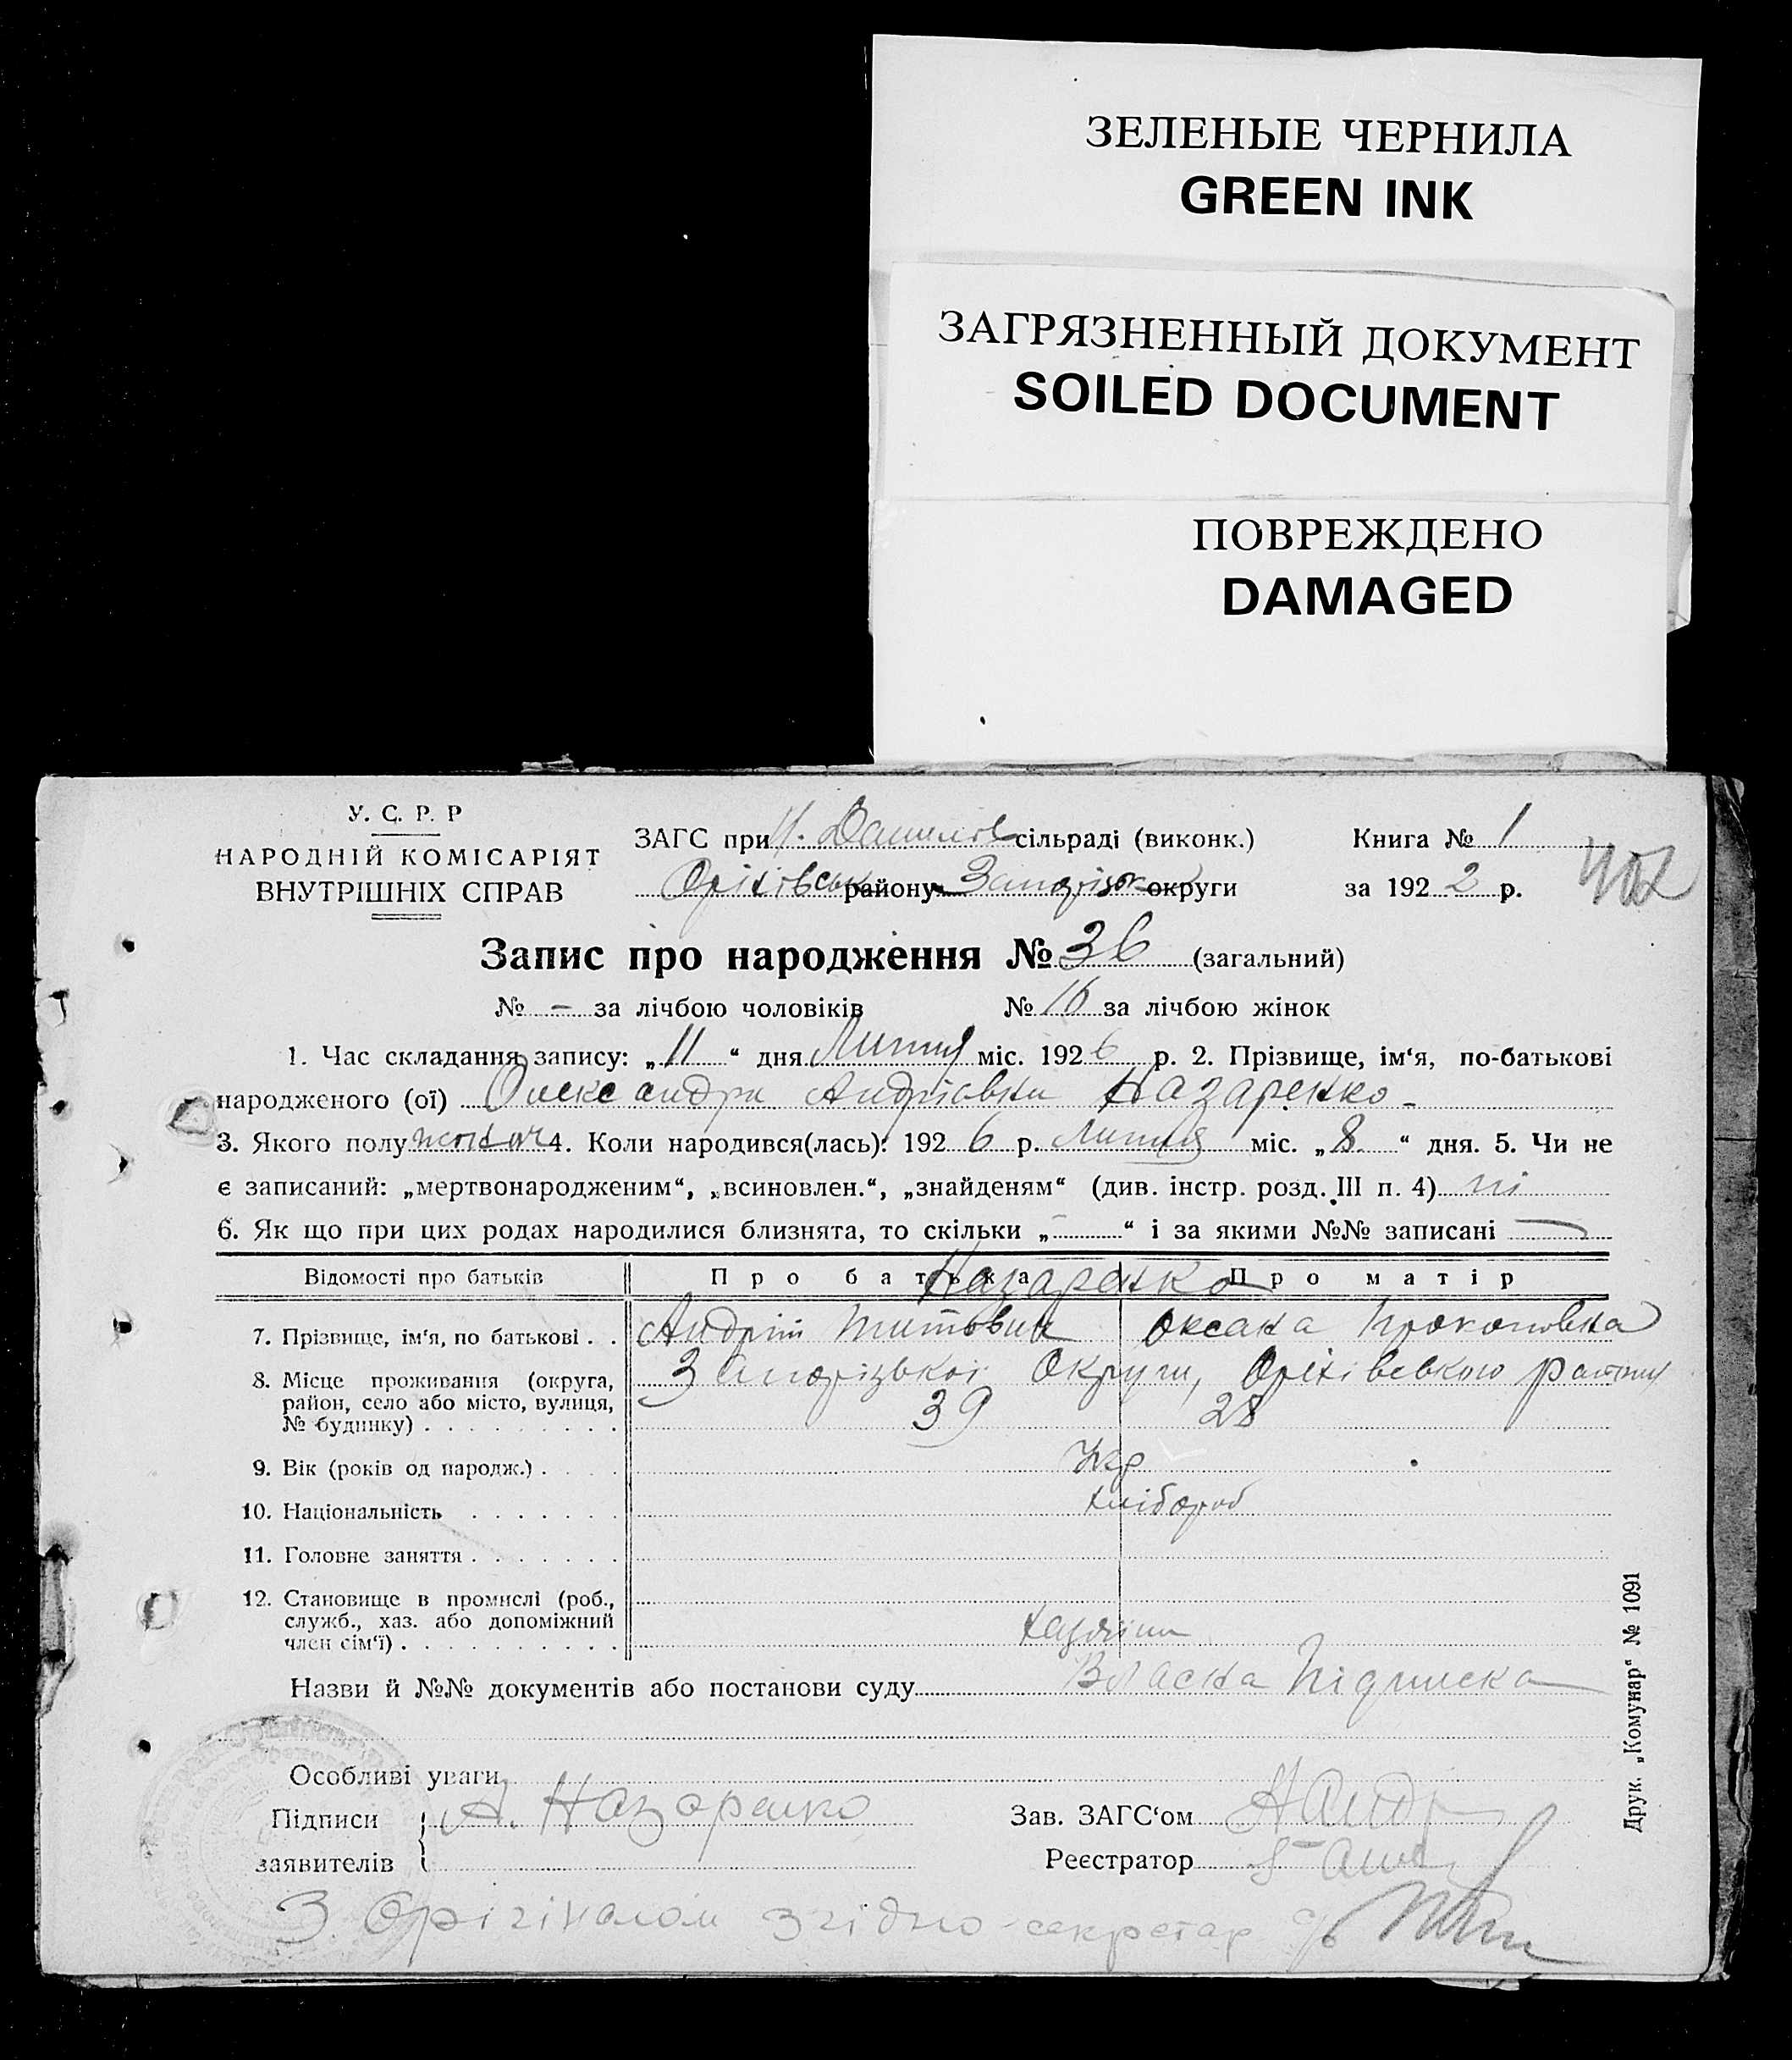 ЗЕЛЕНЫЕ ЧЕРНИЛА
GREEN INK
ЗАГРЯЗНЕННЫЙ ДОКУМЕНТ
SOILED DOCUMENT
ПОВРЕЖДЕНО
DAMAGED
У. С. Р. Р
НАРОДНІЙ КОМІСАРІЯТ
ВНУТРІШНІХ СПРАВ
ЗАГС при сільраді (виконк.)
Оріхівськ району Запоріжок округи
Книга № 1
за 1922 р.
Запис про народження № 36 (загальний)
№ – за лічбою чоловіків № 16 за лічбою жінок
1. Час складання запису: „11“ дня Липня міс. 1926 р. 2. Прізвище, ім‘я, по-батькові
народженого (ої) Олександра Андріовна Назаренко
3. Якого полу 4. Коли народився(лась): 1926 р. Липня міс. „8“ дня. 5. Чи не
є записаний: „мертвонародженим“, „всиновлен.“, „знайденям“ (див. інстр. розд. III п. 4) ні
6. Як що при цих родах народилися близнята, то скільки „–“ і за якими №№ записані —
Відомості про батьків Про батька Про матір
Назаренко
7. Прізвище, ім‘я, по батькові . . Андрій Титович Оксана Прокоповна
8. Місце проживання (округа, район, село або місто, вулиця, № будинку) Запорізької Округи, Оріхівського району
39 28
9. Вік (років од народж.) Укр
10. Національність хлібороб
11. Головне заняття
12. Становище в промислі (роб., служб., хаз. або допоміжний член сім‘ї) Хазяїни
Назви й №№ документів або постанови суду Власна Підписка
Особливі уваги
Підписи заявителів А. Назаренко
Зав. ЗАГС‘ом
Реєстратор
З Орігіналом згідно секретар с/р
Друк. „Комунар“ № 1091